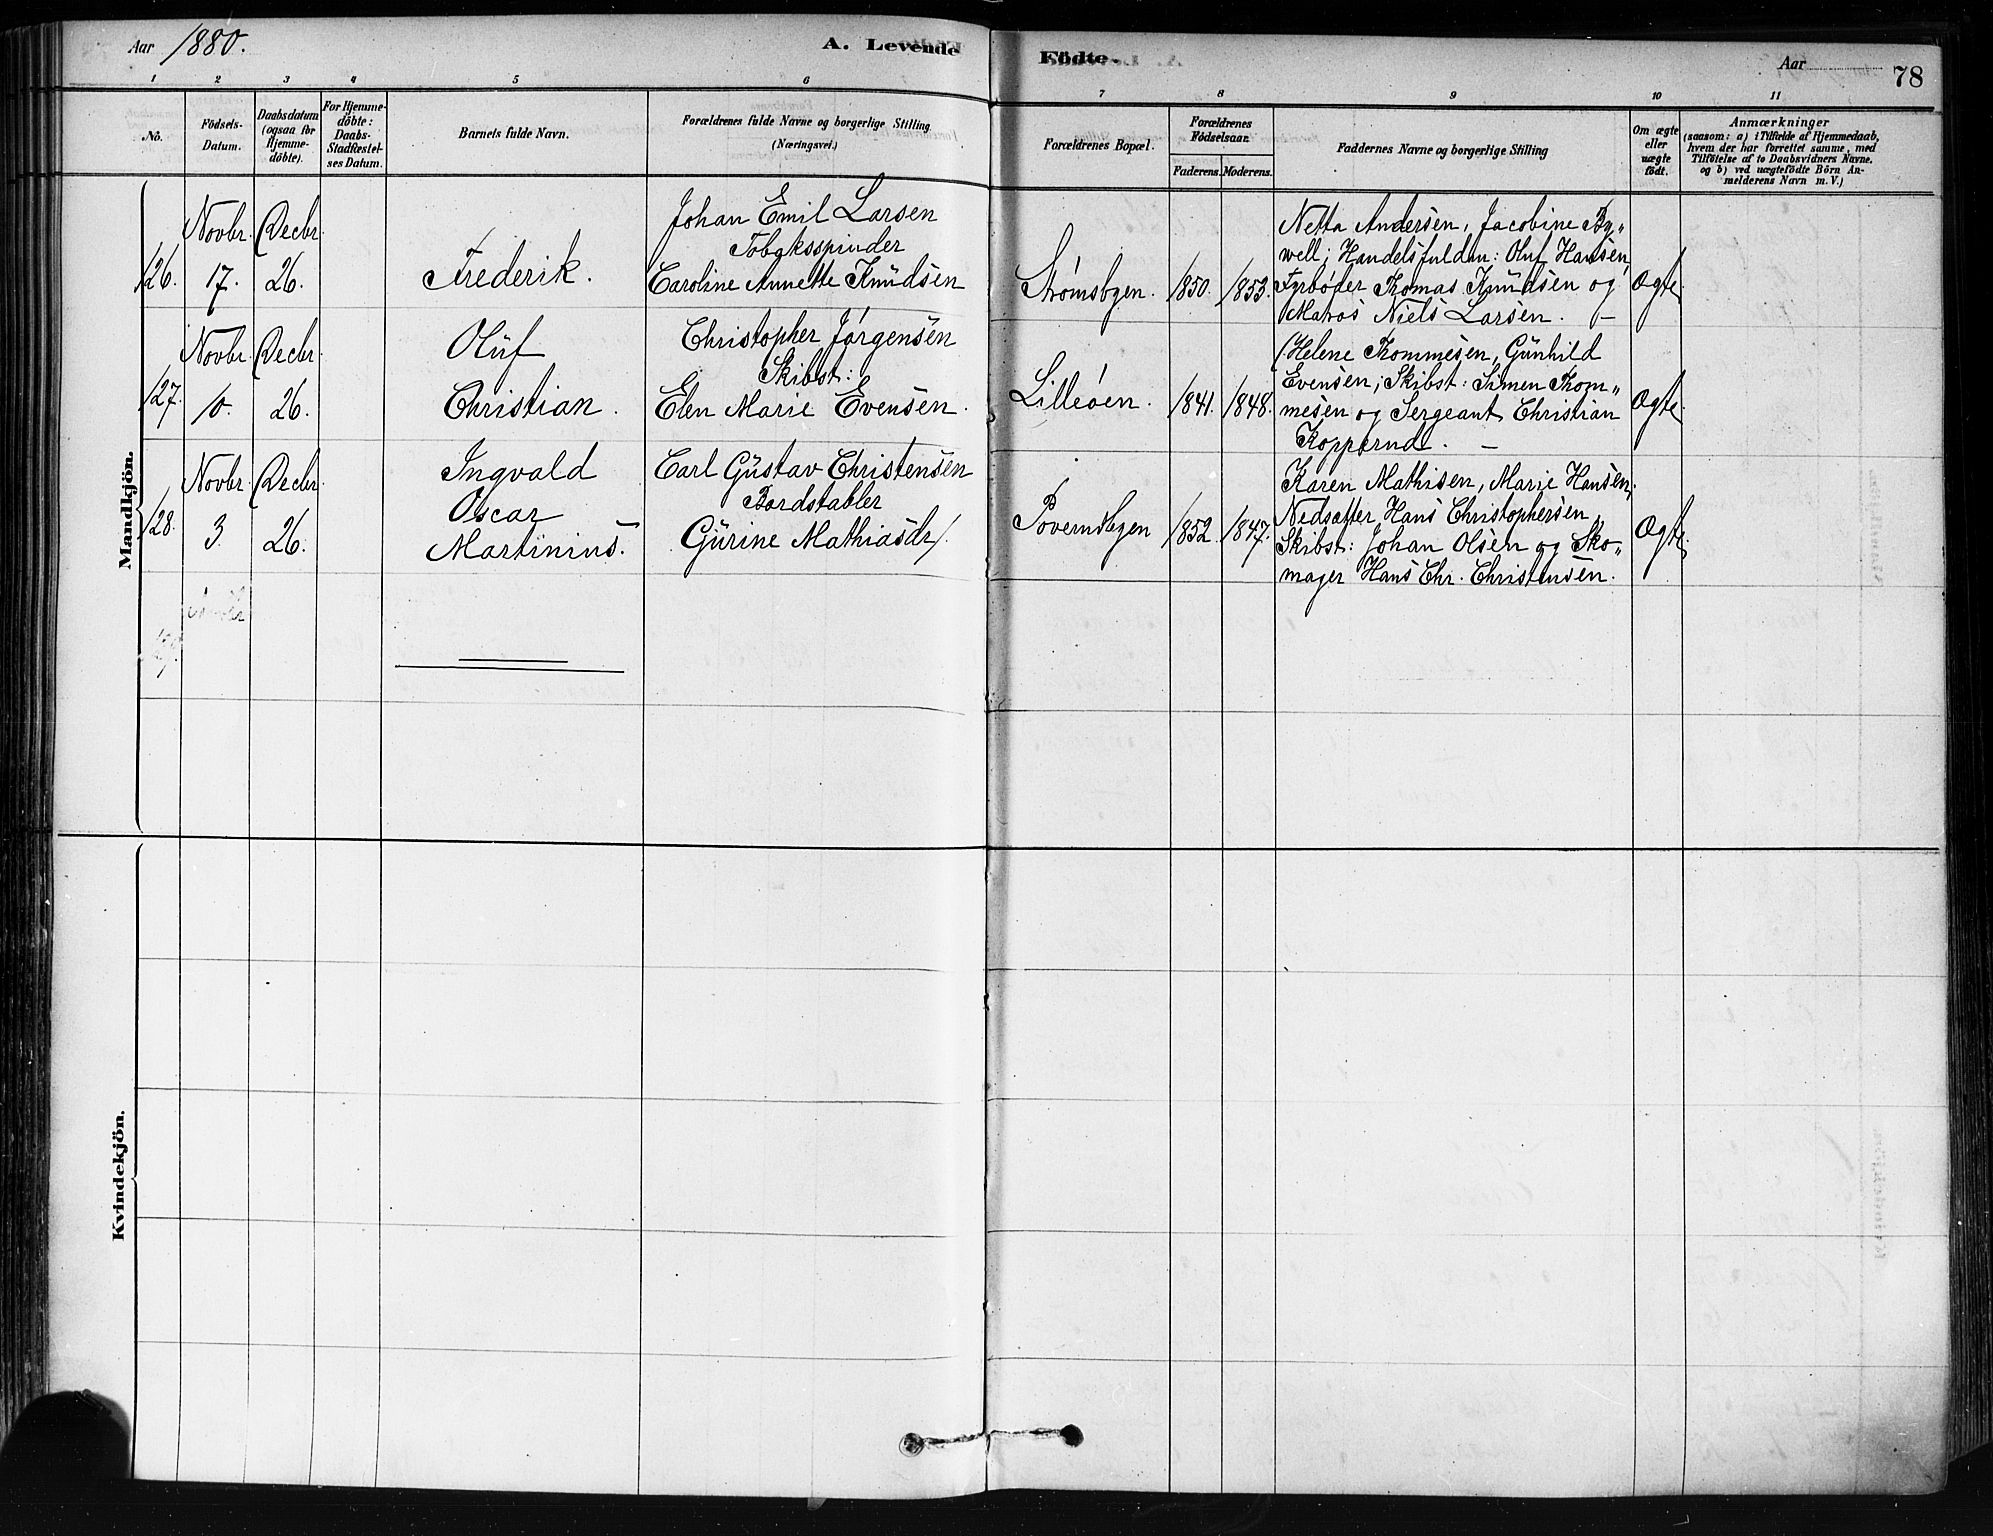 Aar 1880.
A. Levende Födte.
Aar
78
1 2 3 4 5 6 7 8 9 10 11
No.
Födsels-
Datum.
Daabsdatum
(ogsaa for
Hjemme-
döbte).
For Hjemme-
döbte:
Daabs-
Stadfæstel-
ses Datum.
Barnets fulde Navn.
Forældrenes fulde Navne og borgerlige Stilling
(Næringsvei.)
Forældrenes Bopæl.
Forældrenes
Födselsaar.
Faderens. Moderens.
Faddernes Navne og borgerlige Stilling
Om ægte
eller
uægte
födt.
Anmærkninger
(saasom: a) i Tilfælde af Hjemmedaab,
hvem der har forrettet samme, med
Tilföielse af to Daabsvidners Navne,
og b) ved uægtefödte Börn An-
melderens Navn m. V.)
Mandkjön.
126.
Novbr.
17.
Decbr.
26.
Frederik.
Johan Emil Larsen
Tobaksspinder
Caroline Annette Knudsen
Strømsbyen.
1850.
1853.
Netta Andersen, Jacobine By„
well; Handelsfuldm: Oluf Hansen,
Fyrbøter Thomas Knudsen og
Matros Niels Larsen. –
Ægte
127.
Novbr.
10.
Decbr.
26.
Oluf
Christian.
Christopher Jørgensen
Skibst:
Elen Marie Evensen.
Lilleøen.
1841.
1848.
Helene Thommesen, Gunhild
Evensen; Skibst: Simen Thom„
mesen og Sergeant Christian
Kopperud. –
Ægte.
128.
Novbr.
3.
Decbr.
26.
Ingvald
Oscar
Martinius.
Carl Gustav Christensen
Bordstabler
Gurine Mathiasdr.
1852.
1847.
Karen Mathisen, Marie Hansen;
Nedsatter Hans Christophersen,
Skibst: Johan Olsen og Sko„
mager Hans Chr. Christensen.
Ægte.
Kvindekjön.